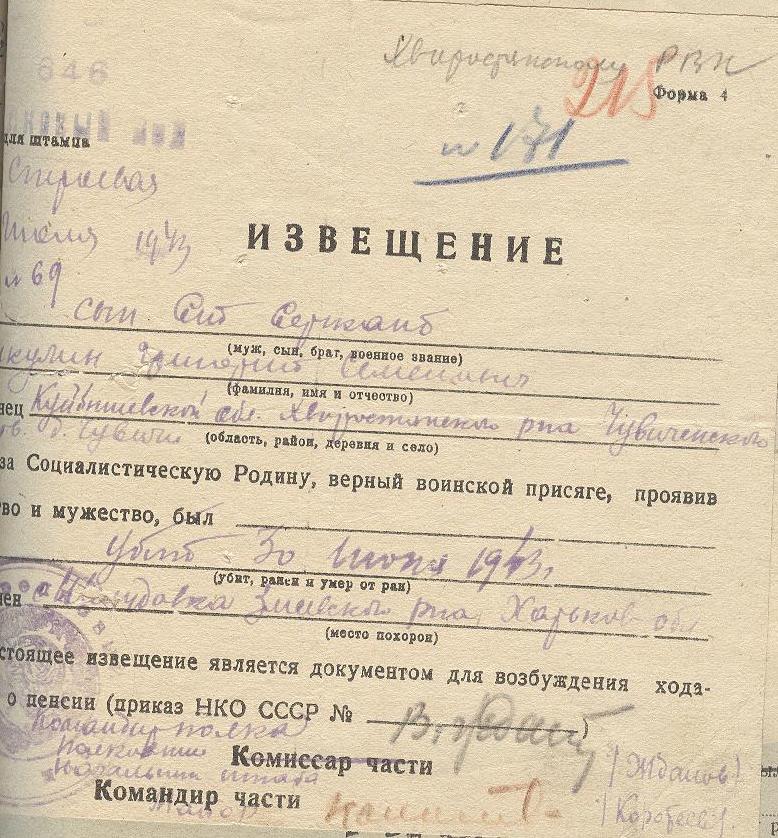 646
Хворостянскому РВК
215
Форма 4
для штампа
№ 171
Июля 1943
№ 69
ИЗВЕЩЕНИЕ
сын Сержант
(муж, сын, брат, военное звание)
кулин Григорий Семенович
(фамилия, имя и отчество)
нец Куйбышевской обл. Хворостянского р-на Чувиченского
д. Чувичи (область, район, деревня и село)
за Социалистическую Родину, верный воинской присяге, проявив
во и мужество, был
убит 30 Июня 1943 г.
(убит, ранен и умер от ран)
нен Змиевского р-на, Харьков обл
(место похорон)
стоящее извещение является документом для возбуждения хода-
о пенсии (приказ НКО СССР № )
Командир полка
Полковник Комиссар части (Жданов)
Начальник штаба
Командир части
Майор (Коротеев)